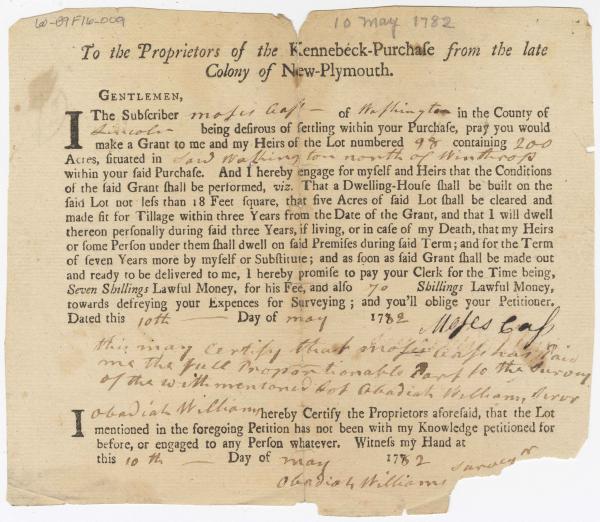 60-89F16-009
10 May 1782
To the Proprietors of the Kennebeck-Purchase from the late
Colony of New-Plymouth.
GENTLEMEN,
I The Subscriber moses Cass of Washington in the County of
Lincoln being desirous of settling within your Purchase, pray you would
make a Grant to me and my Heirs of the Lot numbered 98 containing 200
Acres, situated in Said Washington north of Winthrop
within your said Purchase. And I hereby engage for myself and Heirs that the Conditions
of the said Grant shall be performed, viz. That a Dwelling-House shall be built on the
said Lot not less than 18 Feet square, that five Acres of said Lot shall be cleared and
made fit for Tillage within three Years from the Date of the Grant, and that I will dwell
thereon personally during said three Years, if living, or in case of my Death, that my Heirs
or some Person under them shall dwell on said Premises during said Term; and for the Term
of seven Years more by myself or Substitute; and as soon as said Grant shall be made out
and ready to be delivered to me, I hereby promise to pay your Clerk for the Time being,
Seven Shillings Lawful Money, for his Fee, and also 70 Shillings Lawful Money,
towards defreying your Expences for Surveying; and you'll oblige your Petitioner.
Dated this 10th Day of may 1782
Moses Cass
this may Certify that moses Cass has Paid
me the full Proportionable Part to the Survey
of the with mentioned Lot Obadiah William,
Obadiah Williams
I hereby Certify the Proprietors aforesaid, that the Lot
mentioned in the foregoing Petition has not been with my Knowledge petitioned for
before, or engaged to any Person whatever. Witness my Hand at
this 10th Day of may 1782
Obadiah Williams Surveyor